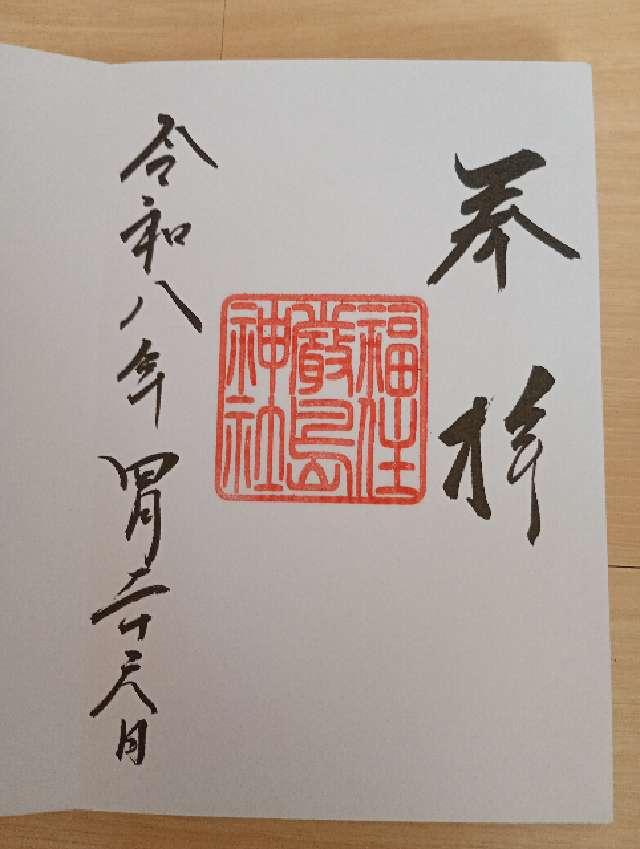 奉拝
福住
厳島
神社
令和八年四月二十六日